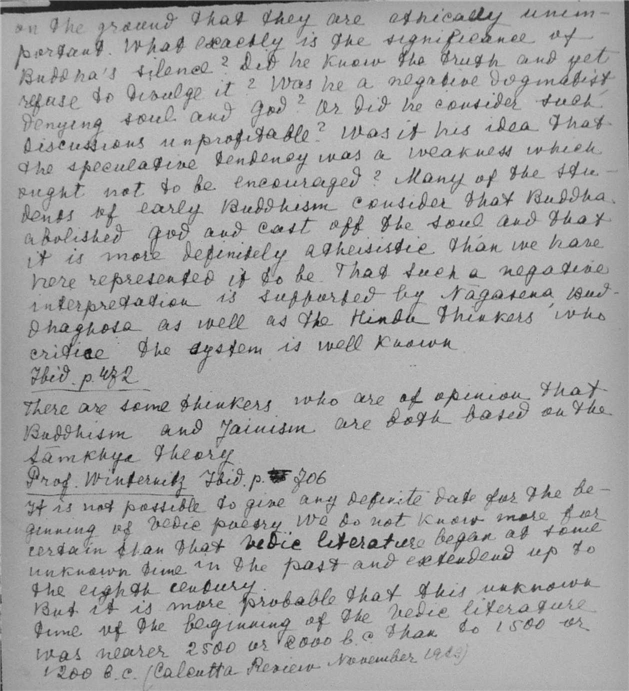 on the ground that they are ethically unim-
portant. What exactly is the significance of
Buddha's silence? Did he know the truth and yet
refuse to divulge it? Was he a negative dogmatist,
denying soul and god? Or did he consider such
discussions unprofitable? Was it his idea that
the speculative tendency was a weakness which
ought not to be encouraged? Many of the stu-
dents of early Buddhism consider that Buddha
abolished god and cast off the soul and that
it is more definitely atheisistic than we have
here represented it to be. That such a negative
interpretation is supported by Nāgasena Bud-
dhaghosa as well as the Hindu thinkers who
critice the system is well known
Ibid. p.
There are some thinkers who are of opinion that
Buddhism and Jainism are both based on the
Sāmkhya Theory
Prof. Winternitz Ibid. p. 706
It is not possible to give any definite date for the be-
ginning of Vedic poetry We do not know more for
certain than that vedic literature began at some
unknown time in the past and extendend up to
the eighth century.
But it is more probable that this unknown
time of the beginning of the Vedic literature
was nearer 2500 or 2000 b.c than to 1500 or
1200 B.C. (Calcutta Review November